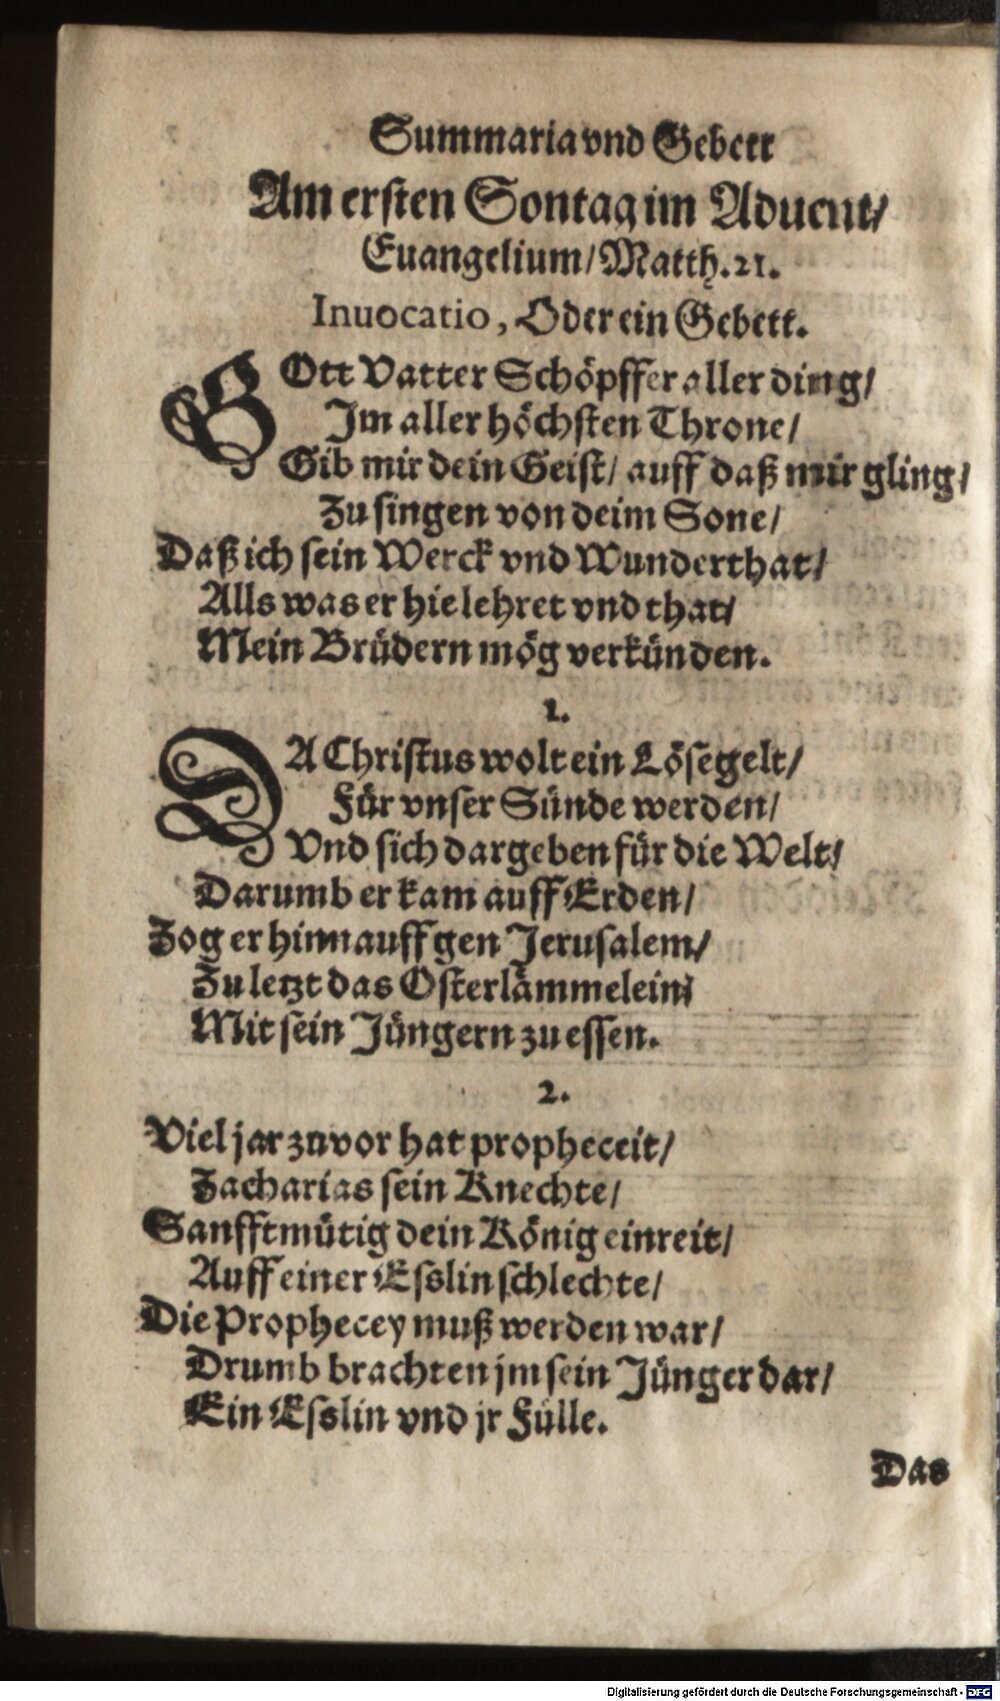 Summaria vnd Gebett
Am ersten Sontag im Aduent/
Euangelium/Matth.21.
Inuocatio, Oder ein Gebett.
GOtt Vatter Schöpffer aller ding/
Im aller höchsten Throne/
Gib mir dein Geist/ auff daß mir gling/
Zu singen von deim Sone/
Daß ich sein Werck vnd Wunderthat/
Alls was er hie lehret vnd that/
Mein Brüdern mög verkünden.
1.
DA Christus wolt ein Lösegelt/
Für vnser Sünde werden/
Vnd sich dargeben für die Welt/
Darumb er kam auff Erden/
Zog er hinnauff gen Jerusalem/
Zu letzt das Osterlämmelein/
Mit sein Jüngern zu essen.
2.
Viel jar zuvor hat propheceit/
Zacharias sein Knechte/
Sanfftmütig dein König einreit/
Auff einer Eßlin schlechte/
Die Prophecey muß werden war/
Drumb brachten jm sein Jünger dar/
Ein Eßlin vnd jr Fülle.
Das
Digitalisierung gefördert durch die Deutsche Forschungsgemeinschaft - DFG